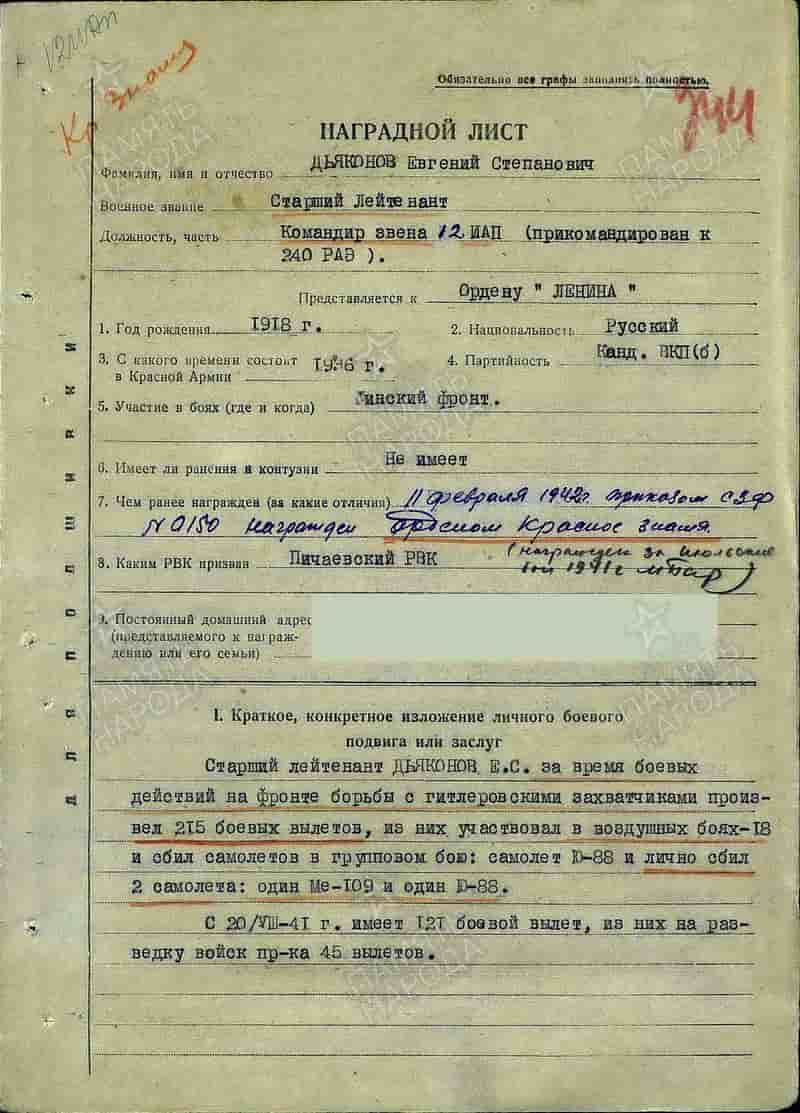 Кр знамя
Обязательно все графы заполнять полностью.
744
НАГРАДНОЙ ЛИСТ
Фамилия, имя и отчество ДЬЯКОНОВ Евгений Степанович
Военное звание Старший Лейтенант
Должность, часть Командир звена 12 ИАП (прикомандирован к
240 РАЭ ).
Представляется к Ордену " ЛЕНИНА "
1. Год рождения 1918 г. 2. Национальность Русский
3. С какого времени состоит 1936 г. 4. Партийность Канд. ВКП(б)
в Красной Армии
5. Участие в боях (где и когда) Финский фронт.
6. Имеет ли ранения и контузии Не имеет
7. Чем ранее награжден (за какие отличия) 11 февраля 1942г. приказом СЗФ
N 0150 награжден орденом Красное знамя.
8. Каким РВК призван Пичаевский РВК (награжден за июльские
бои 1941г
9. Постоянный домашний адрес
(представляемого к награж-
дению или его семьи)
I. Краткое, конкретное изложение личного боевого
подвига или заслуг
Старший лейтенант ДЬЯКОНОВ Е.С. за время боевых
действий на фронте борьбы с гитлеровскими захватчиками произ-
вел 215 боевых вылетов, из них участвовал в воздушных боях-18
и сбил самолетов в групповом бою: самолет Ю-88 и лично сбил
2 самолета: один Ме-109 и один Ю-88.
С 20/УШ-41 г. имеет 121 боевой вылет, из них на раз-
ведку войск пр-ка 45 вылетов.
ПАМЯТЬ
НАРОДА